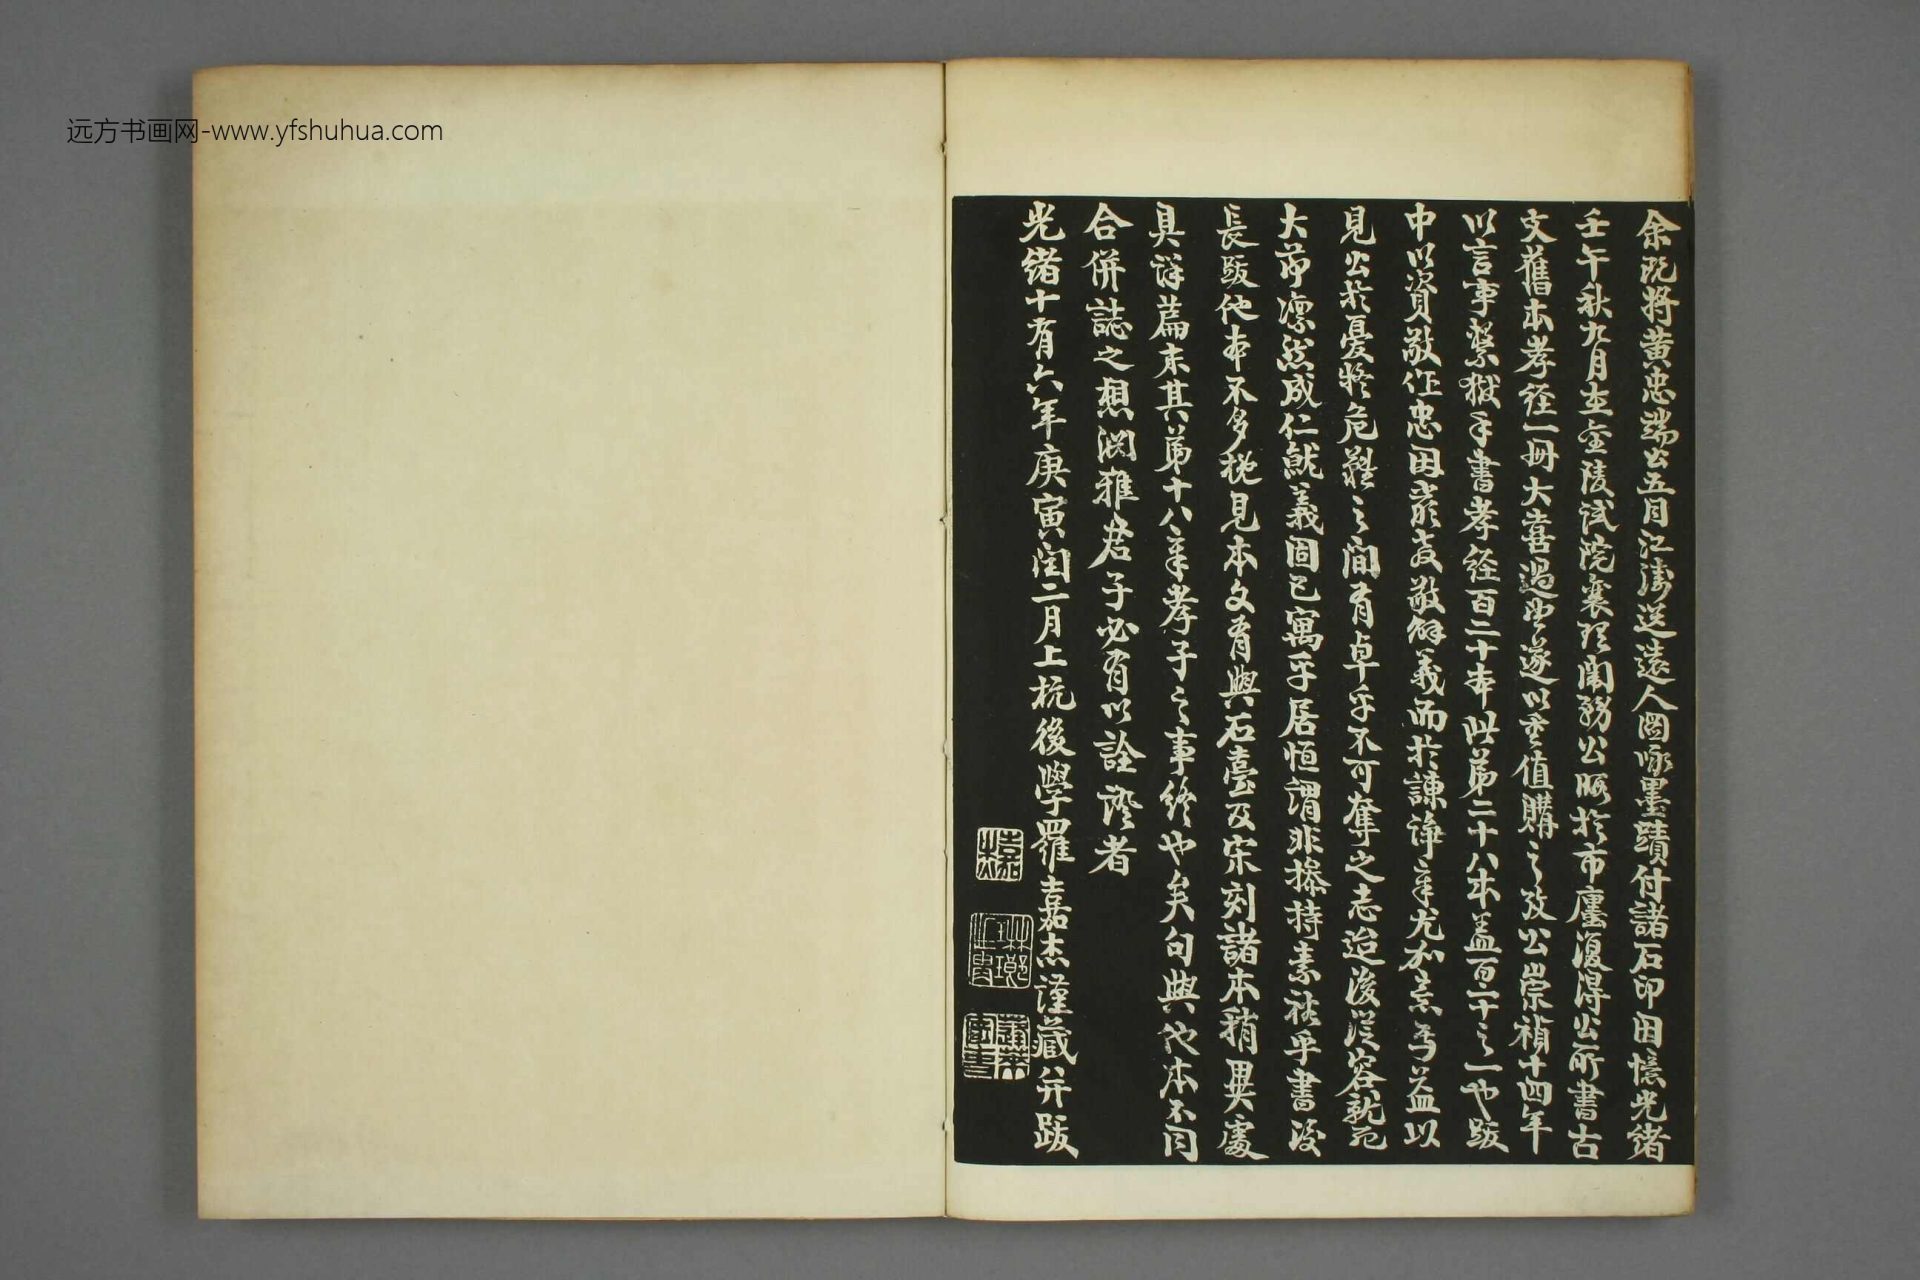 远方书画网-www.yfshuhua.com
余既将黄忠端公五月江涛送遠人圖咏墨蹟付諸石印因憶光緒
壬午秋九月在金陵試院襄理闈務公暇於市廛復得公所書古
文舊本孝經一册大喜過望遂以重值購之攷公崇禎十四年
以言事繫獄手書孝經百二十本此第二十八本盖百二十之一也跋
中以資敬作忠因嚴教敬解義而於諫諍章尤加意焉益以
見公於憂疑危難之間有卓乎不可奪之志迨後從容就死
大節凛然成仁就義固已寓乎居恒謂非操持素裕乎書後
長跋他本不多概見本文有與石臺及宋刻諸本稍異處
具詳篇末其第十八章孝子之事終也矣句與他本不同
合併誌之想淵雅君子必有以詮證者
光緒十有六年庚寅閏二月上杭後學羅嘉杰謹藏并跋
嘉杰